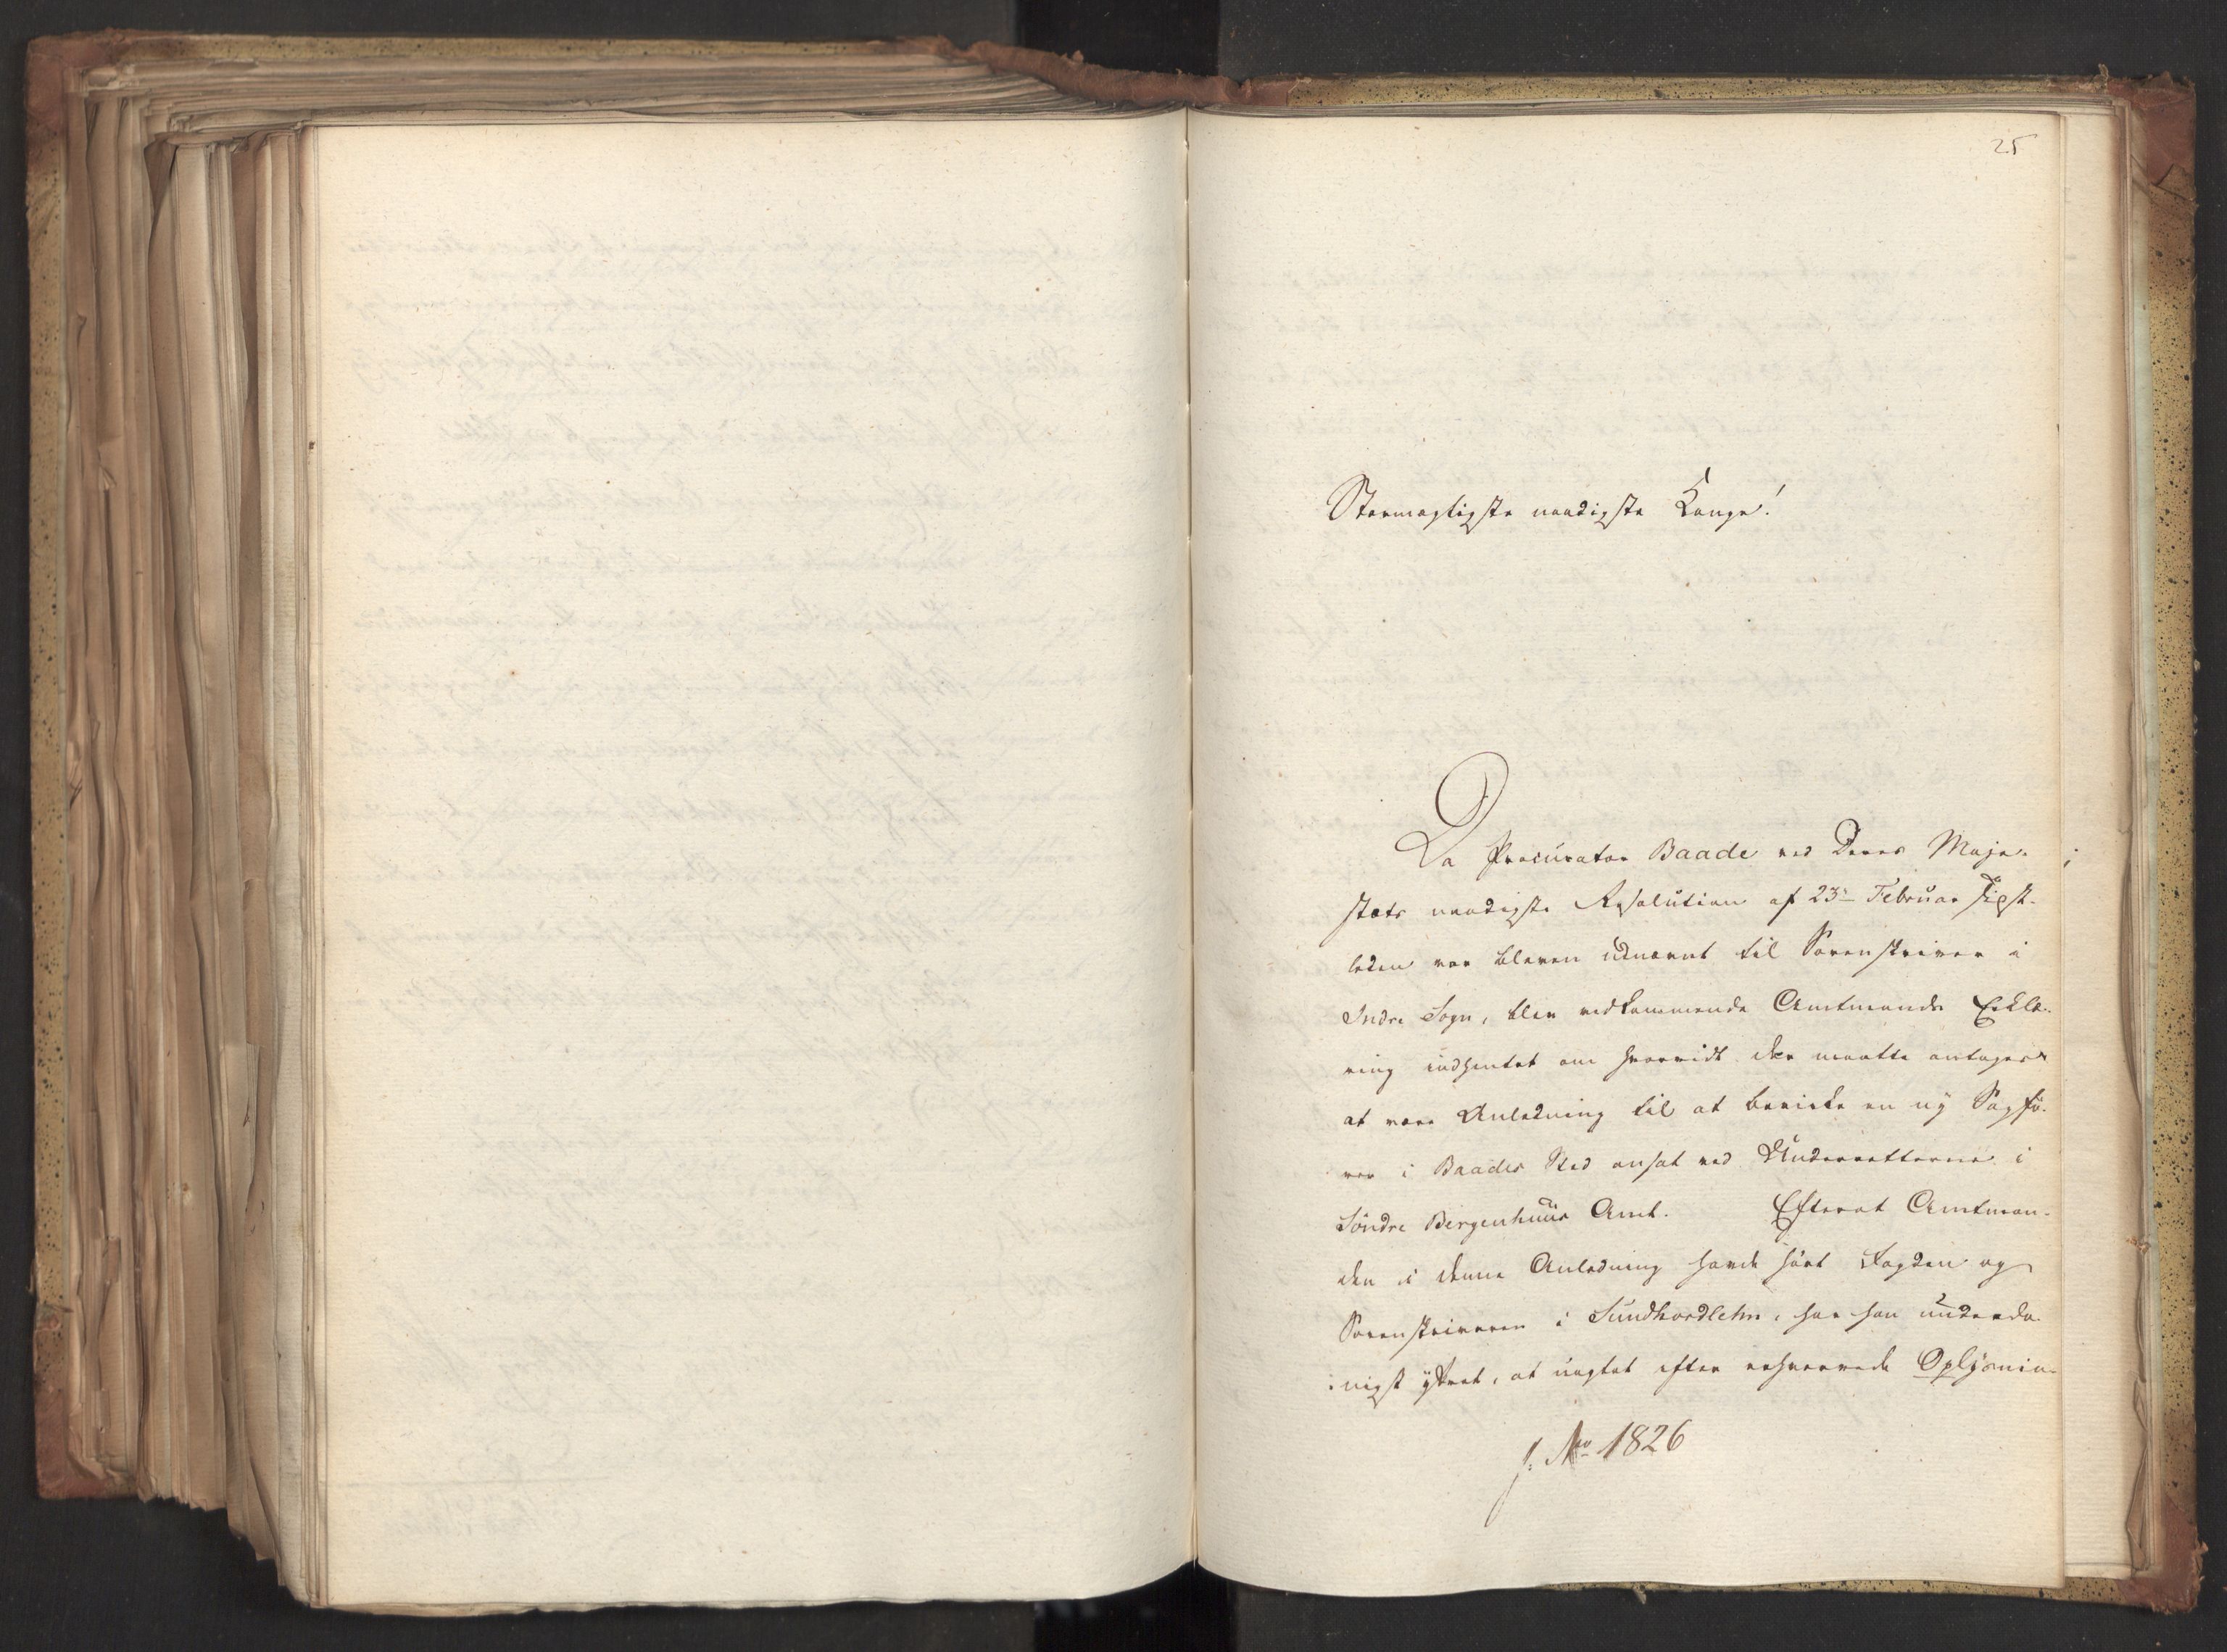 25
Stormægtigste naadigste Konge!
Da Procurator Baade ved Deres Maje-
stæts naadigste Resolution af 23de Februar sidst-
leden var bleven udnævnt til Sorenskriver i
Indre Sogn, blev vedkommende Amtmands Erklæ-
ring indhentet om hvorvidt der maatte antages
at være Anledning til at bevirke en ny Sagfö-
rer i Baades Sted ansat ved Underretterne i
Söndre Bergenhuus Amt. Efterat Amtman-
den i denne Anledning havde hört Fogden og
Sorenskriveren i Sundhordlehn, har han underda-
nigst yttret, at uagtet efter erhvervede Oplysnin-
J. No 1826